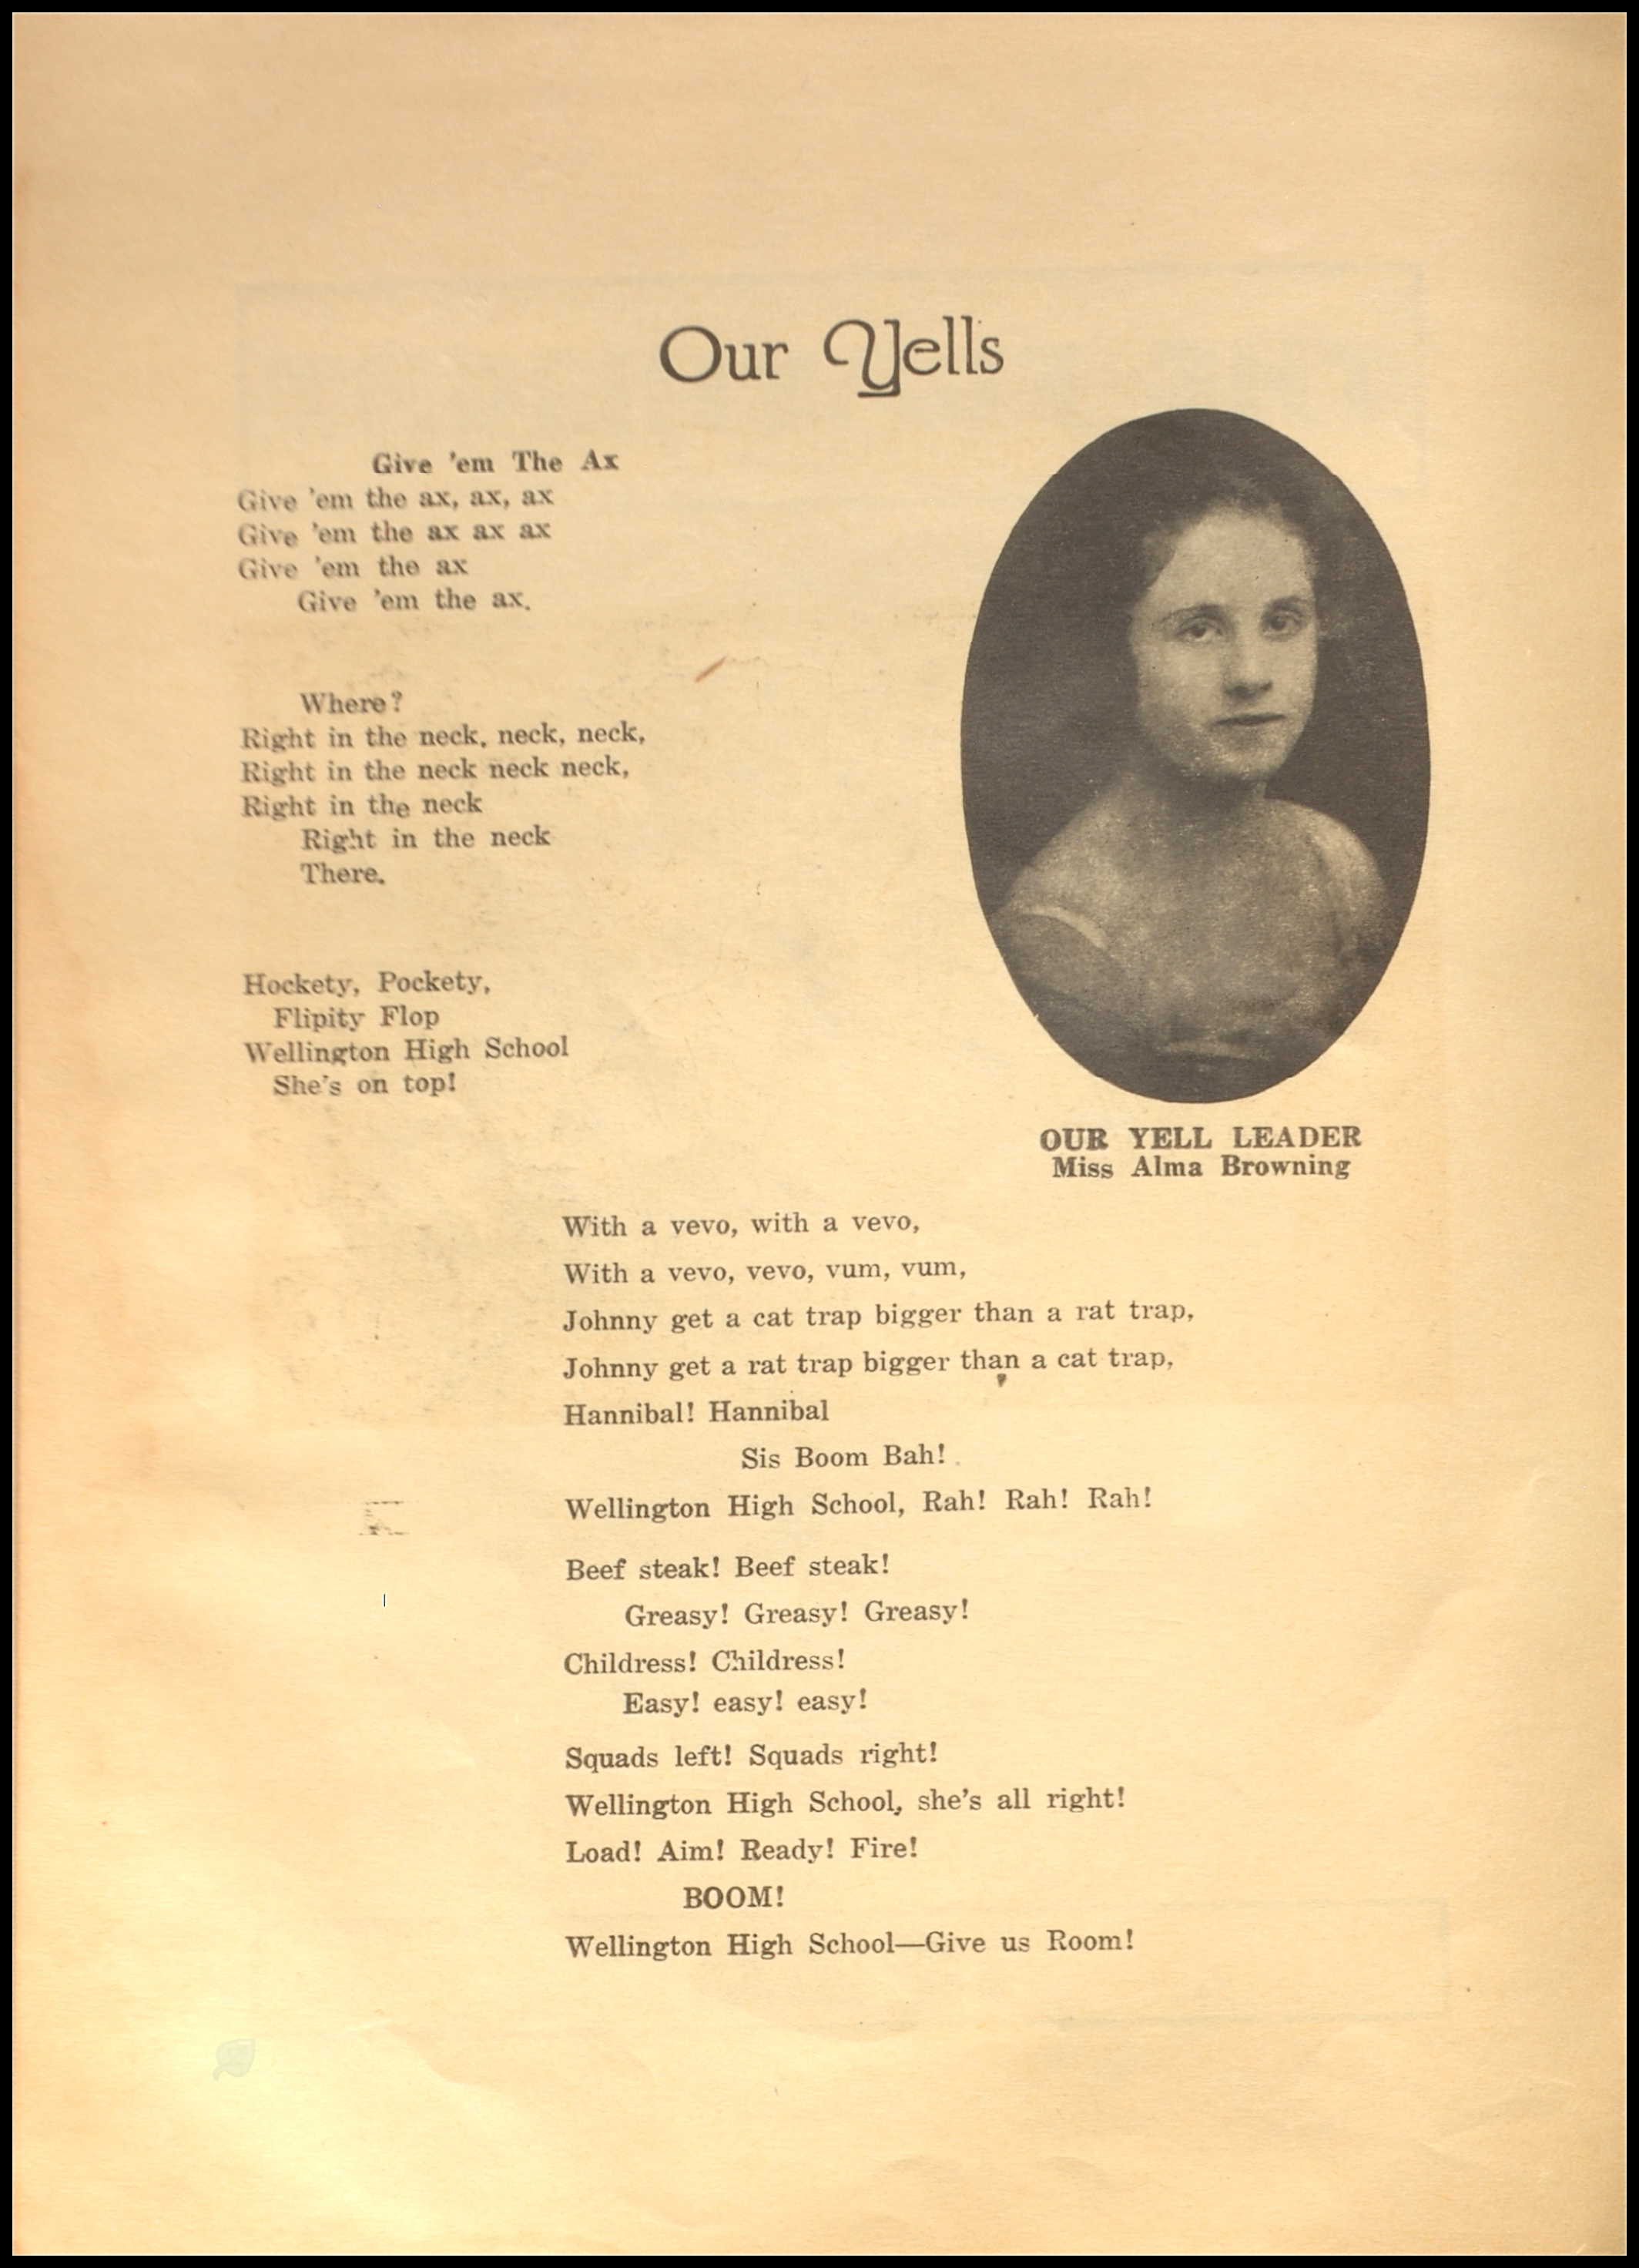 Our Yells
Give 'em The Ax
Give 'em the ax, ax, ax
Give 'em the ax ax ax
Give 'em the ax
Give 'em the ax.
Where?
Right in the neck, neck, neck,
Right in the neck neck neck,
Right in the neck
Right in the neck
There.
Hockety, Pockety,
Flipity Flop
Wellington High School
She's on top!
OUR YELL LEADER
Miss Alma Browning
With a vevo, with a vevo,
With a vevo, vevo, vum, vum,
Johnny get a cat trap bigger than a rat trap,
Johnny get a rat trap bigger than a cat trap,
Hannibal! Hannibal
Sis Boom Bah!
Wellington High School, Rah! Rah! Rah!
Beef steak! Beef steak!
Greasy! Greasy! Greasy!
Childress! Childress!
Easy! easy! easy!
Squads left! Squads right!
Wellington High School, she's all right!
Load! Aim! Ready! Fire!
BOOM!
Wellington High School—Give us Room!